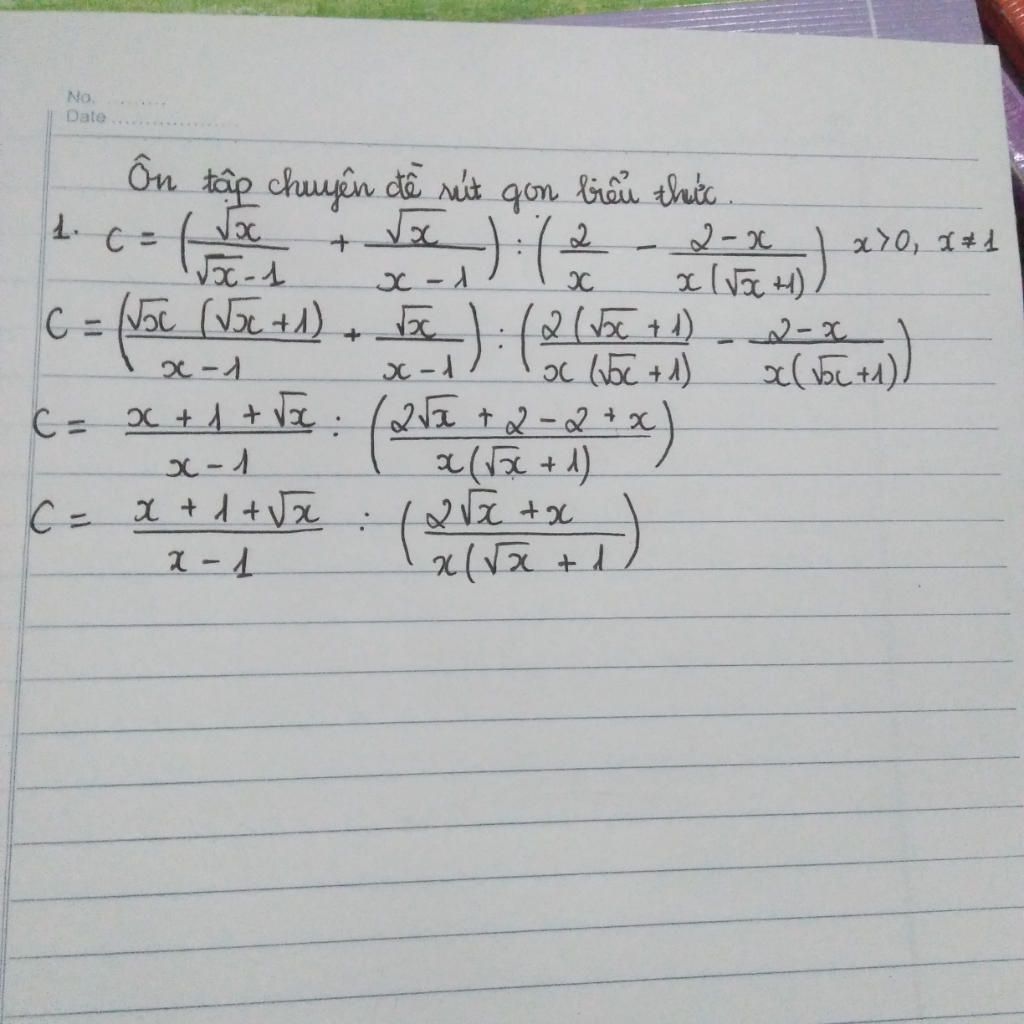 No. .........
Date ..................
Ôn tập chuyên đề rút gọn biểu thức.
1. C = (√x/(√x - 1) + √x/(x - 1)) : (2/x - (2 - x)/(x(√x + 1))) x > 0, x ≠ 1
C = (√x (√x + 1)/(x - 1) + √x/(x - 1)) : (2(√x + 1)/(x(√x + 1)) - (2 - x)/(x(√x + 1)))
C = (x + 1 + √x)/(x - 1) : ((2√x + 2 - 2 + x)/(x(√x + 1)))
C = (x + 1 + √x)/(x - 1) : ((2√x + x)/(x(√x + 1))